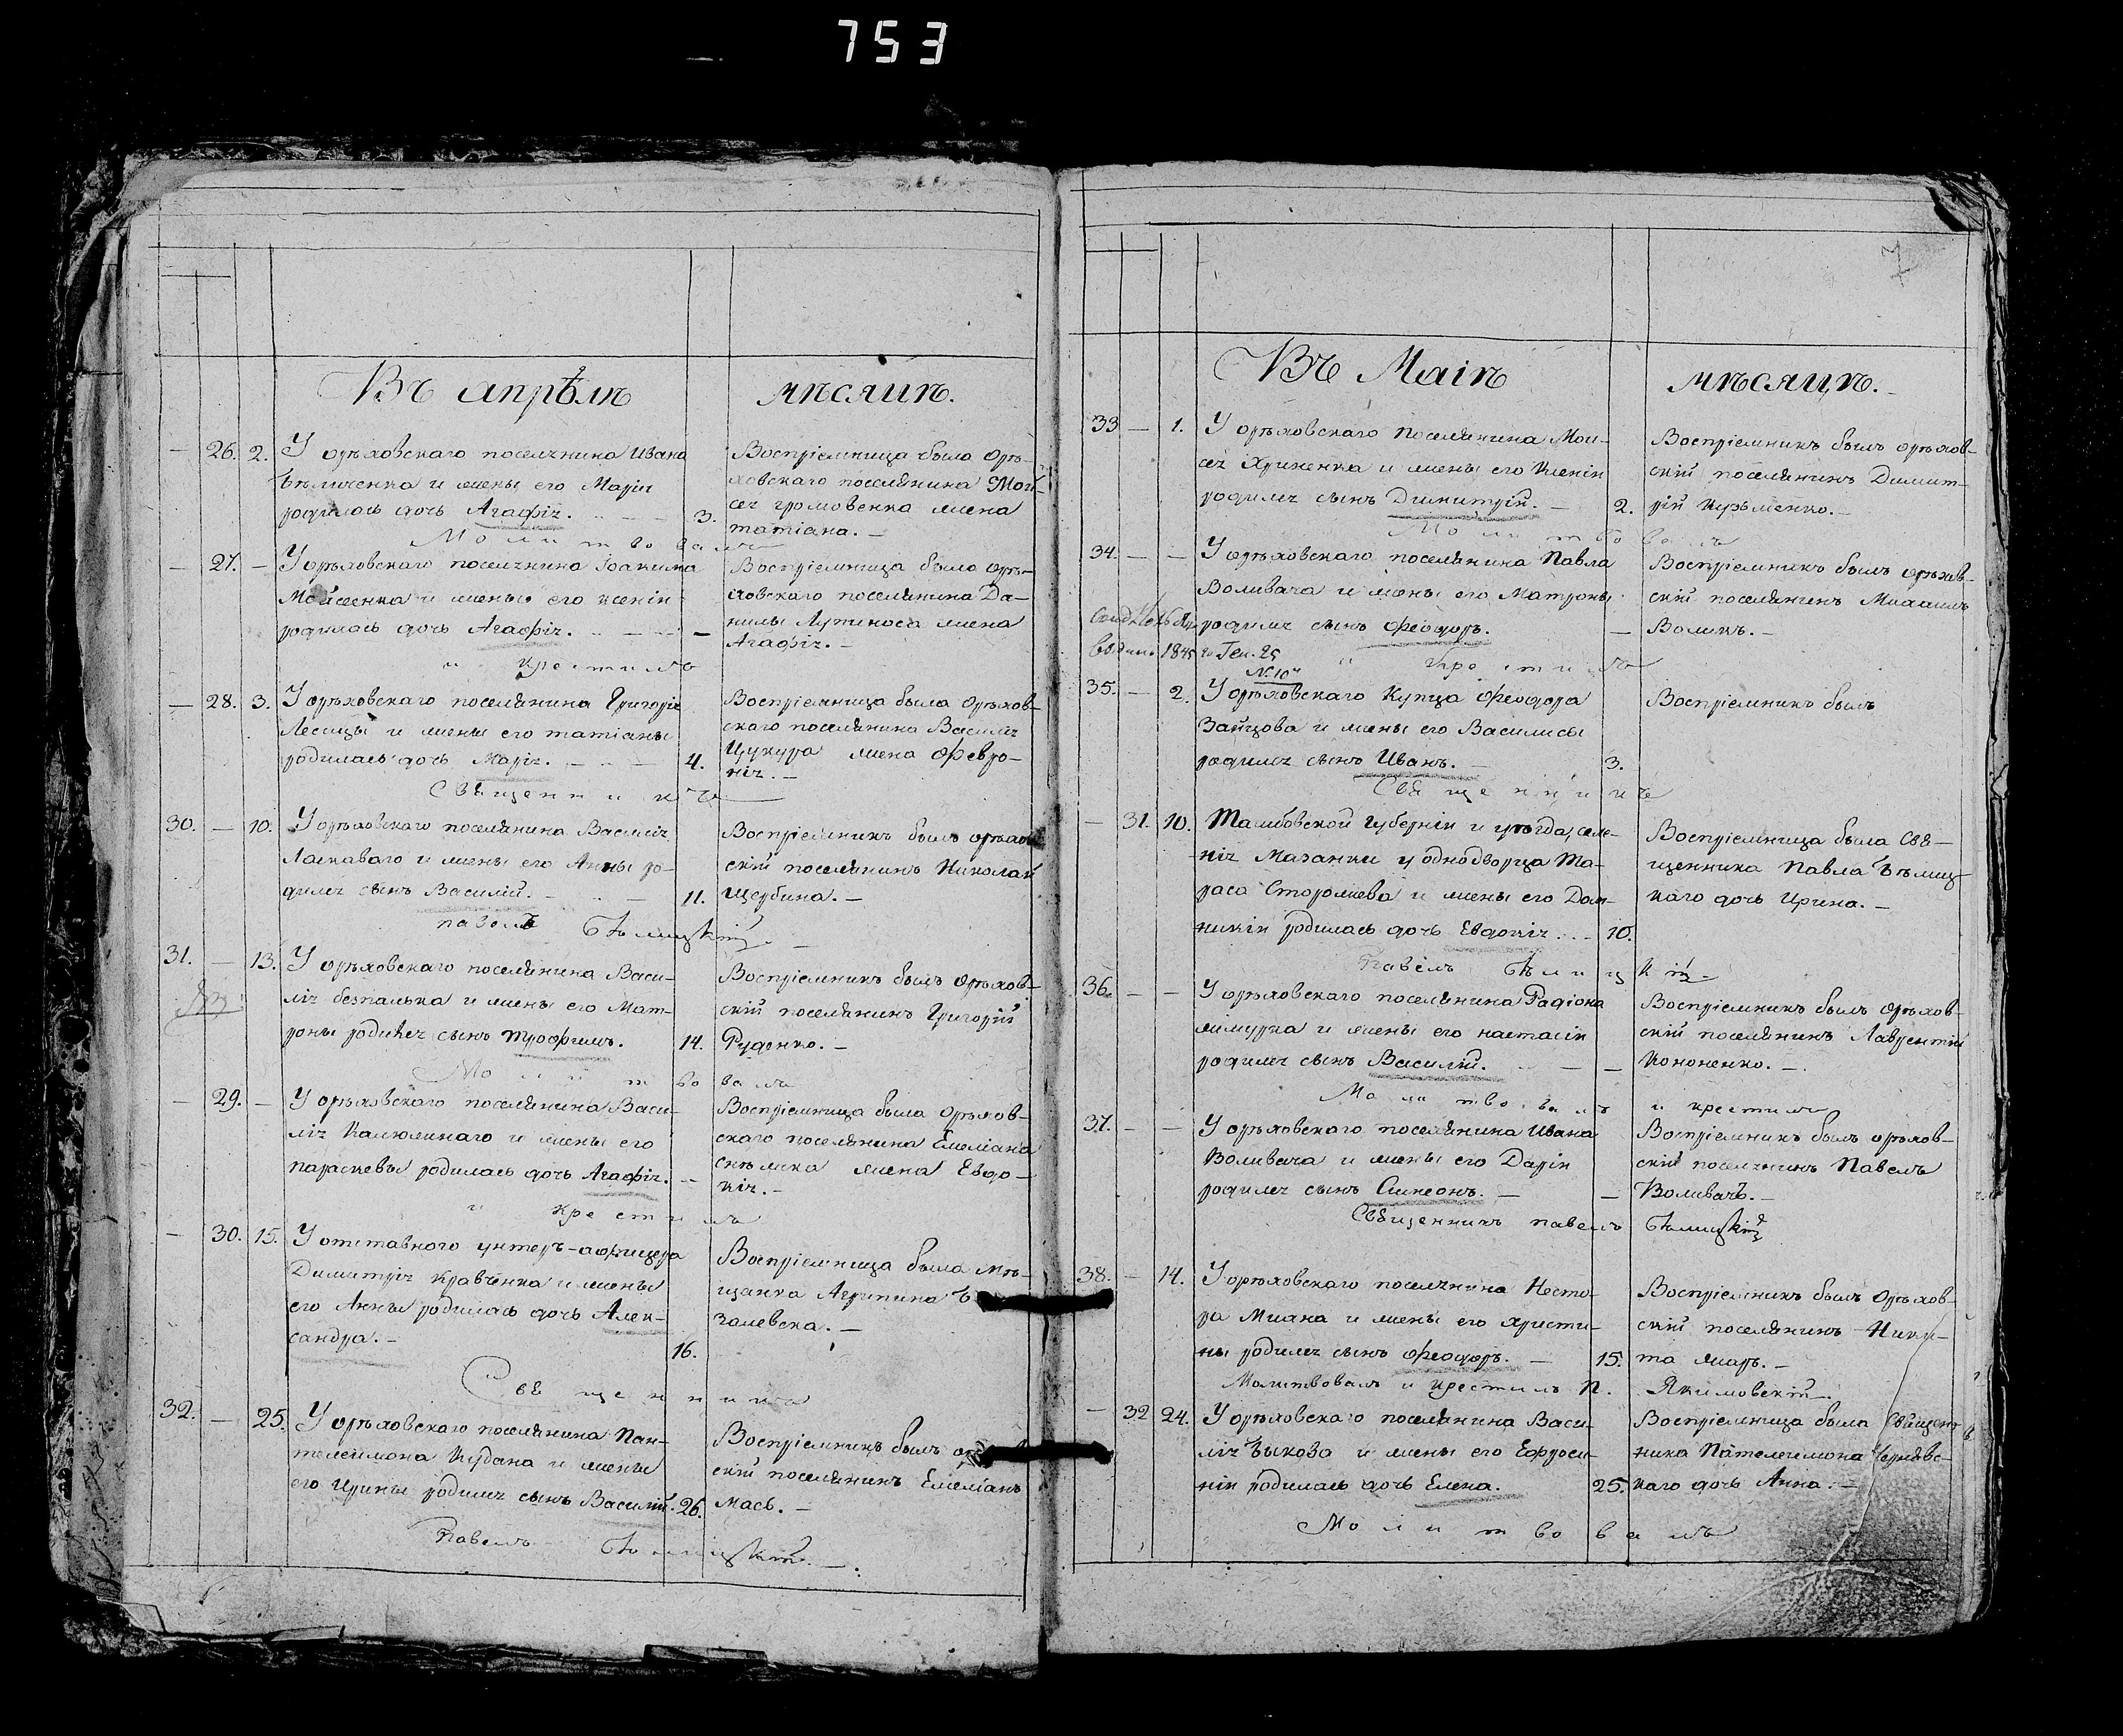 753
Въ апрѣлѣ мѣсяцѣ.
26. 2. У орѣховскаго поселянина Ивана
Бѣличенка и жены его Маріи
родилась дочь Агафія. 3.
Воспріемница была Орѣ-
ховскаго поселянина Мой-
сея Громовенка жена
татіана.
Молитвовалъ
27. У орѣховскаго поселянина Іоакима
Мойсеенка и жены его Ксеніи
родилась дочь Агафія.
Воспріемница была орѣ-
ховскаго поселянина Да-
нилы Лупиноса жена
Агафія.
и крестилъ
28. 3. У орѣховскаго поселянина Григорія
Лесицы и жены его татіаны
родилась дочь Марія. 4.
Воспріемница была Орѣхов-
скаго поселянина Василія
Цукура жена Февро-
нія.
Священникъ
30. 10. У орѣховскаго поселянина Василія
Ласкаваго и жены его Анны ро-
дился сынъ Василій. 11.
Воспріемникъ былъ орѣхов
скій поселянинъ Николай
Щербина.
павелъ Бѣлицкій
31. 13. У орѣховскаго поселянина Васи-
лія безпалька и жены его Мат-
роны родился сынъ трофимъ. 14.
Воспріемникъ былъ Орѣхов-
скій поселянинъ Григорій
Руденко.
Молитвовалъ
29. У орѣховскаго поселянина Васи-
лія Калюжнаго и жены его
параскевы родилась дочь Агафія.
Воспріемница была Орѣхов-
скаго поселянина Емеліана
жена Евдо-
кія.
и крестилъ
30. 15. У отставного унтеръ-афицера
Димитрія Кравченка и жены
его Анны родилась дочь Алек-
сандра. 16.
Воспріемница была мѣ-
щанка Агрипина
залевска.
Священникъ
32. 25. У орѣховскаго поселянина Пан-
телеимона Кубана и жены
его Ирины родился сынъ Василій. 26.
Воспріемникъ былъ
скій поселянинъ Емеліанъ
Мась.
Павелъ Бѣлицкій.
Въ Маіѣ мѣсяцѣ.
33 1. У орѣховскаго поселянина Мои-
сея Хриненка и жены его Ксеніи
родился сынъ Димитрій. 2.
Воспріемникъ былъ орѣхов-
скій поселянинъ Димит-
рій Кузьменко.
Молитвовалъ
34. У орѣховскаго поселянина Павла
Воливача и жены его Матроны
родился сынъ Феодоръ.
Воспріемникъ былъ орѣхов-
скій поселянинъ Михаилъ
Воликъ.
1845 го Ген. 25
и крестилъ
35. 2. У орѣховскаго Купца Феодора
Зайцова и жены его Василисы
родился сынъ Иванъ. 3.
Воспріемникъ былъ
Священникъ
31. 10. Тамбовской Губерніи и уѣзда, селе-
нія Мазанки у однодворца Та-
раса Сторожева и жены его Дом-
никіи родилась дочь Евдокія. 10.
Воспріемница была Свя-
щенника Павла Бѣлиц-
каго дочь Ирина.
Павелъ Бѣлицкій
36. У орѣховскаго поселянина Радіона
и жены его настасіи
родился сынъ Василій.
Воспріемникъ былъ Орѣхов-
скій поселянинъ Лаврентій
Кононенко.
Молитвовалъ и крестилъ
37. У орѣховскаго поселянина Ивана
Воливача и жены его Даріи
родился сынъ Симеонъ.
Воспріемникъ былъ орѣхов-
скій поселянинъ Павелъ
Воливачъ.
Священникъ павелъ Бѣлицкій
38. 14. У орѣховскаго поселянина Несто-
ра Мияна и жены его христи-
ны родился сынъ Феодоръ. 15.
Воспріемникъ былъ Орѣхов-
скій поселянинъ Ники-
та
Молитвовалъ и Крестилъ П. Якимовскій.
32 24. У орѣховскаго поселянина Васи-
лія Быкова и жены его Ефроси-
ніи родилась дочь Елена. 25.
Воспріемница была Священ-
ника Пателеимона Чернявс-
каго дочь Анна.
Молитвовалъ